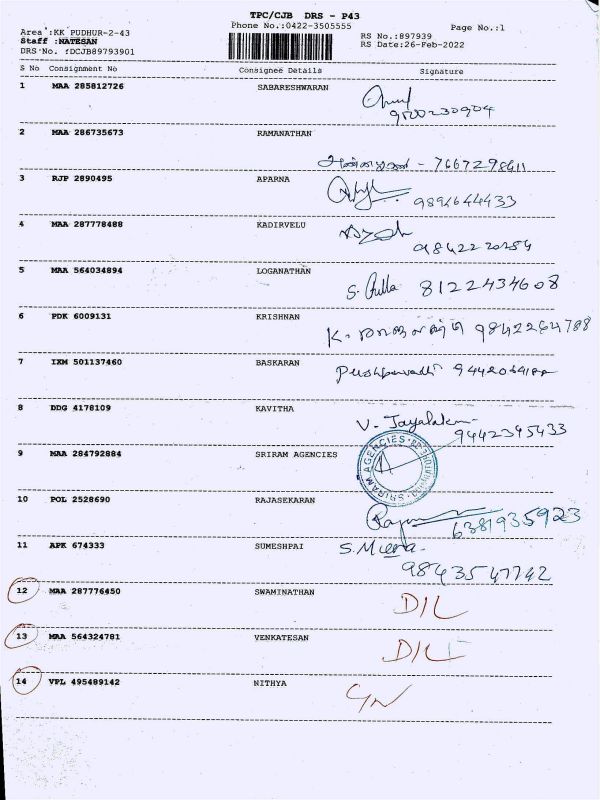 TPC/CJB DRS - P43
Phone No.:0422-3505555
Page No.:1
Area :KK PUDHUR-2-43
Staff :NATESAN
DRS No. :DCJB89793901
RS No.:897939
RS Date:26-Feb-2022
S No Consignment No Consignee Details Signature
1 MAA 285812726 SABARESHWARAN
9500230904
2 MAA 286735673 RAMANATHAN
3 RJP 2890495 APARNA
9894644433
4 MAA 287778488 KADIRVELU
9842270254
5 MAA 564034894 LOGANATHAN
8122434608
6 PDK 6009131 KRISHNAN
K. 9842264788
7 IXM 501137460 BASKARAN
8 DDG 4178109 KAVITHA
V. Jayalakm
9442395433
9 MAA 284792884 SRIRAM AGENCIES
SRIRAM AGENCIES
10 POL 2528690 RAJASEKARAN
6381935923
11 APK 674333 SUMESHPAI
S. Meena
9843547742
12 MAA 287776450 SWAMINATHAN
D/L
13 MAA 564324781 VENKATESAN
D/L
14 VPL 495489142 NITHYA